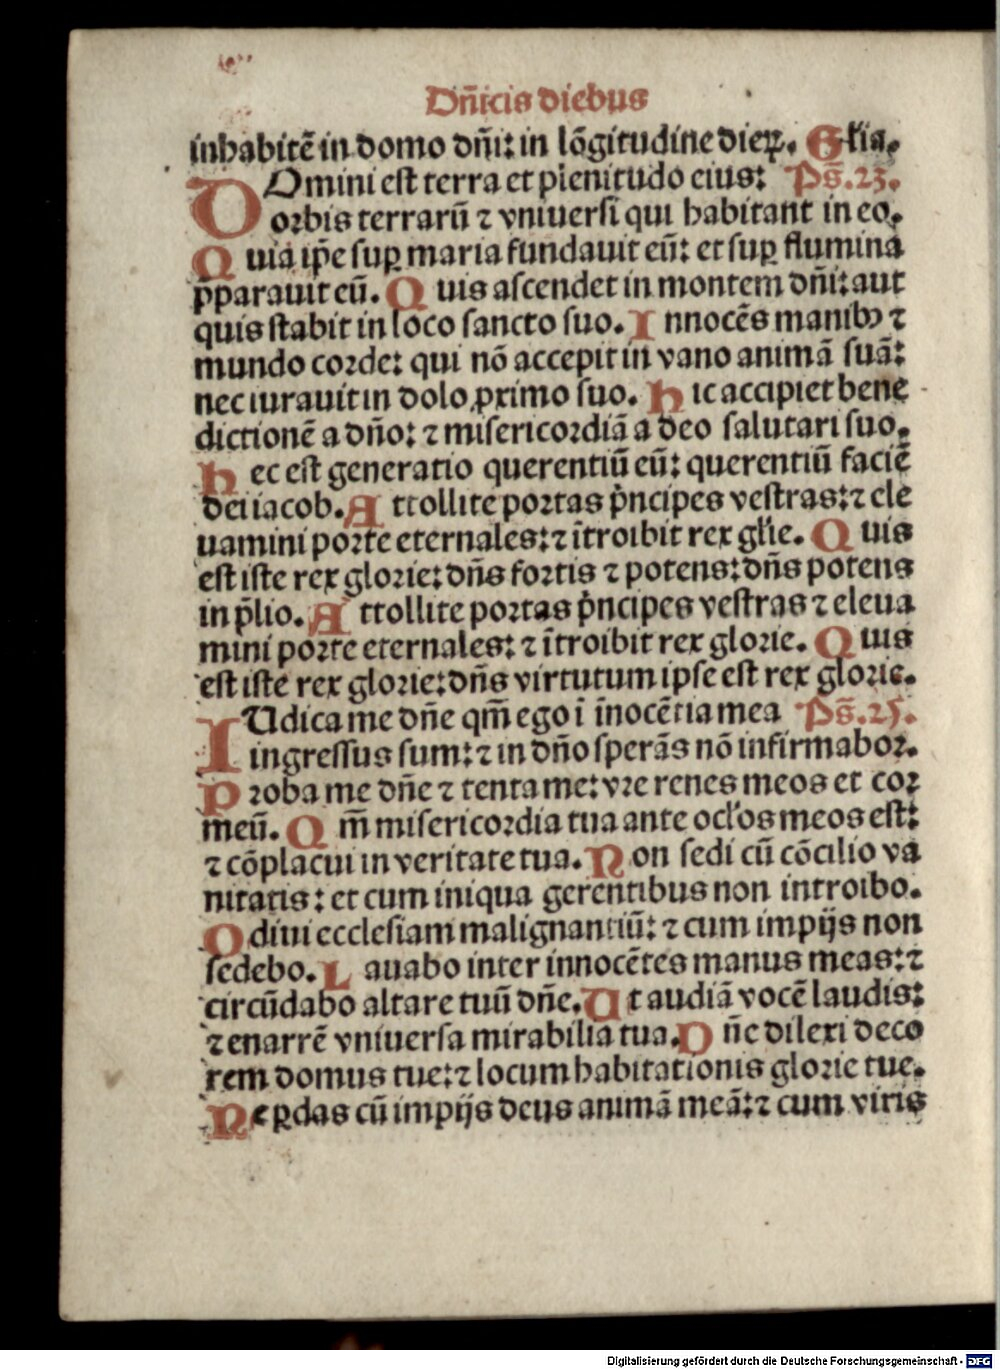 Dñicis diebus
inhabitē in domo dñi: in lōgitudine dieꝝ. Gl'ia.
DOmini est terra et plenitudo eius: Ps̄.23.
orbis terrarū ⁊ vniuersi qui habitant in eo.
Quia ip̄e sup̲ maria fundauit eū: et sup̲ flumina
p̄parauit eū. Quis ascendet in montem dñi: aut
quis stabit in loco sancto suo. Innocēs manibꝰ ⁊
mundo corde: qui nō accepit in vano animā suā:
nec iurauit in dolo ꝓximo suo. Hic accipiet bene
dictionē a dño: ⁊ misericordiā a deo salutari suo.
Hec est generatio querentiū eū: querentiū faciē
dei iacob. Attollite portas p̍ncipes vestras: ⁊ ele
uamini porte eternales: ⁊ ītroibit rex gl'ie. Quis
est iste rex glorie: dñs fortis ⁊ potens: dñs potens
in p̄lio. Attollite portas p̍ncipes vestras ⁊ eleua
mini porte eternales: ⁊ ītroibit rex glorie. Quis
est iste rex glorie: dñs virtutum ipse est rex glorie.
IUdica me dñe qm̄ ego ī īnocētia mea Ps̄.25.
ingressus sum: ⁊ in dño sperās nō infirmabor.
Proba me dñe ⁊ tenta me: vre renes meos et cor
meū. Qm̄ misericordia tua ante ocl'os meos est:
⁊ cōplacui in veritate tua. Non sedi cū cōcilio va
nitatis: et cum iniqua gerentibus non introibo.
Odiui ecclesiam malignantiū: ⁊ cum impijs non
sedebo. Lauabo inter innocētes manus meas: ⁊
circūdabo altare tuū dñe. Ut audiā vocē laudis:
⁊ enarrē vniuersa mirabilia tua. Dñe dilexi deco
rem domus tue: ⁊ locum habitationis glorie tue.
Ne ꝑdas cū impijs deus animā meā: ⁊ cum viris
Digitalisierung gefördert durch die Deutsche Forschungsgemeinschaft - DFG